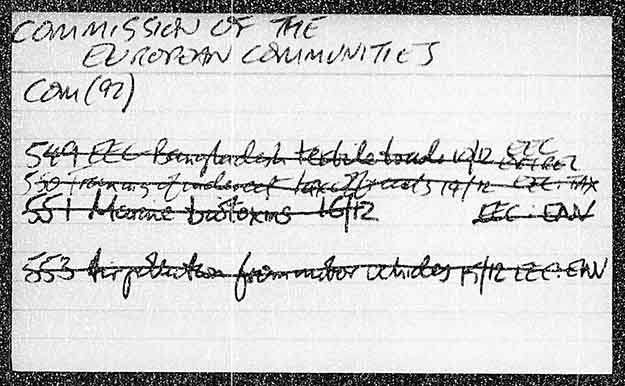 COMMISSION OF THE
EUROPEAN COMMUNITIES
COM(92)
549 EEC-Bangladesh textile trade 10/12 EEC
550 Training of indirect tax officials 14/12 EEC: TAX
551 Marine biotoxins 16/12 EEC: EAW
553 Air pollution from motor vehicles 15/12 EEC: EAW